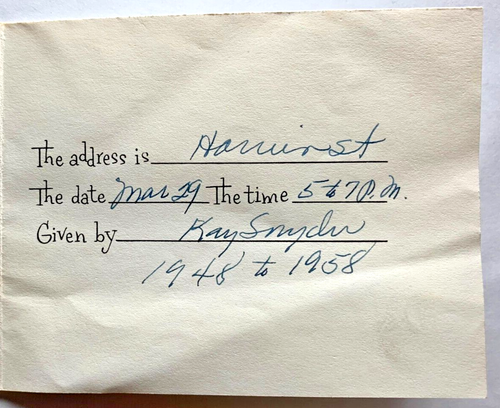 The address is Harrison St
The date Mar 29 The time 5 to 7 P.M.
Given by Kay Snyder
1948 to 1958